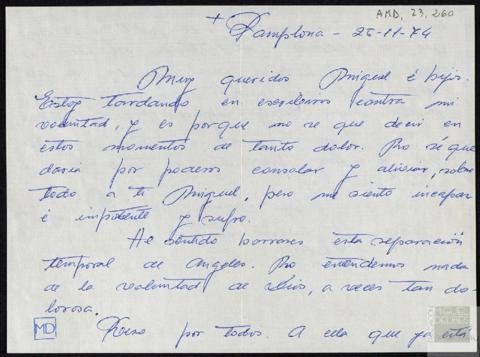 AMD, 23, 260
+
Pamplona - 25-11-74
Muy queridos Miguel é hijos.
Estoy tardando en escribiros contra mi
voluntad, y es porque no se que decir en
estos momentos de tanto dolor. No sé que
daria por poderos consolar y aliviar, sobre
todo a ti Miguel, pero me siento incapaz
é impotente y sufro.
He sentido horrores esta separación
temporal de Angeles. No entendemos nada
de la voluntad de Dios, a veces tan do-
lorosa.
Rezo por todos. A ella que ya está
MD